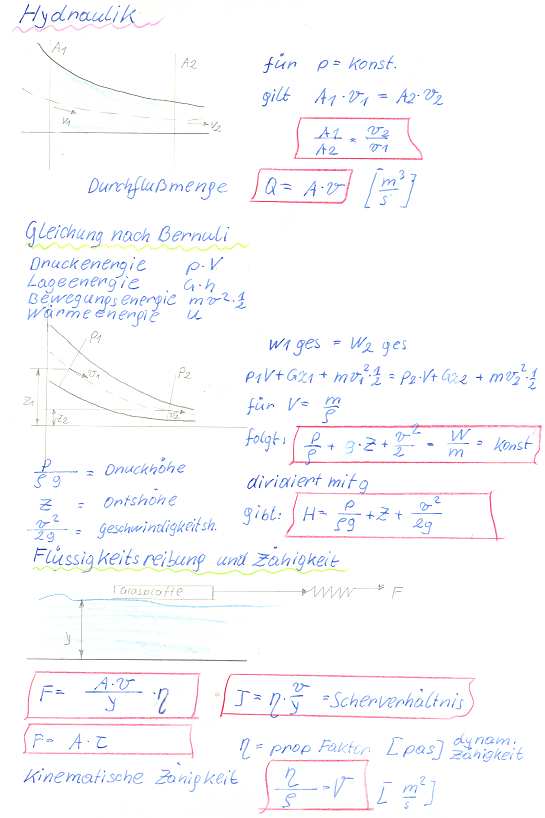 Hydraulik
A1
A2
v1
v2
für ρ = konst.
gilt A1 · v1 = A2 · v2
A1/A2 = v2/v1
Durchflußmenge Q = A · v [m³/s]
Gleichung nach Bernuli
Druckenergie p · V
Lageenergie G · h
Bewegungsenergie mv² · 1/2
Wärmeenergie u
P1
P2
v1
v2
z1
z2
W1 ges = W2 ges
p1V + Gz1 + mv1² · 1/2 = p2 · V + Gz2 + mv2² · 1/2
für V = m/ρ
folgt: p/ρ + g · z + v²/2 = W/m = konst
p/ρg = Druckhöhe
dividiert mit g
z = Ortshöhe
gibt: H = p/ρg + z + v²/2g
v²/2g = geschwindigkeitsh.
Flüssigkeitsreibung und Zähigkeit
Glasplatte
F
y
F = A · v/y · η
τ = η · v/y = Scherverhältnis
F = A · τ
η = prop Faktor [pas] dynam. Zähigkeit
Kinematische Zähigkeit η/ρ = V [m²/s]